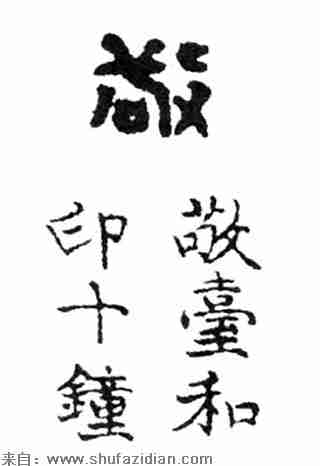 敬
敬臺和
印十鐘
来自：www.shufazidian.com